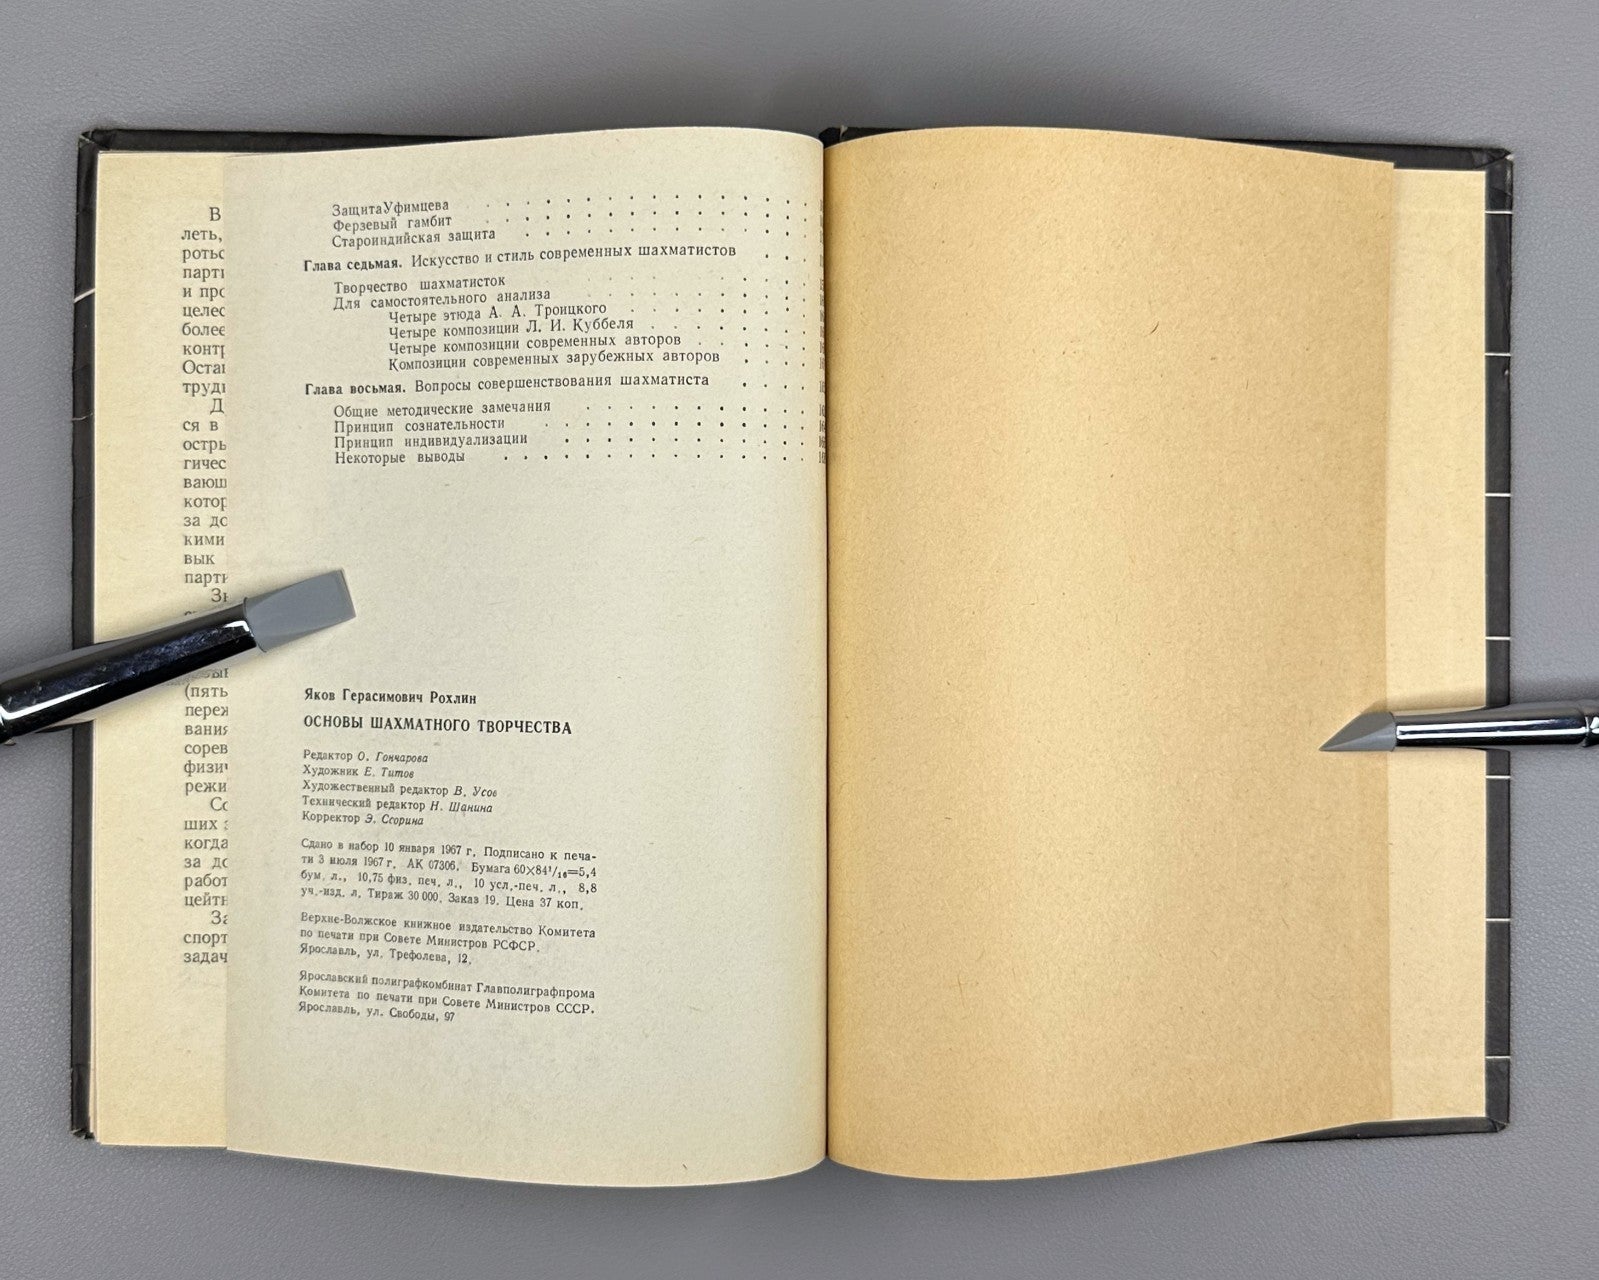 В
леть,
ротьс
парти
и прс
целес
более
контр
Остаі
трудн
Д
ся в
остры
гичес
вающ
котор
за дс
кими
вык
парти
Зн
(пять
переж
вания
сорев
физич
режи
Сс
ших з
когда
за дс
работ
цейтн
За
спорт
задач
Защита Уфимцева
Ферзевый гамбит
Староиндийская защита
Глава седьмая. Искусство и стиль современных шахматистов
Творчество шахматисток
Для самостоятельного анализа
Четыре этюда А. А. Троицкого
Четыре композиции Л. И. Куббеля
Четыре композиции современных авторов
Композиции современных зарубежных авторов
Глава восьмая. Вопросы совершенствования шахматиста
Общие методические замечания
Принцип сознательности
Принцип индивидуализации
Некоторые выводы
Яков Герасимович Рохлин
ОСНОВЫ ШАХМАТНОГО ТВОРЧЕСТВА
Редактор О. Гончарова
Художник Е. Титов
Художественный редактор В. Усов
Технический редактор Н. Шанина
Корректор Э. Сгорина
Сдано в набор 10 января 1967 г. Подписано к печа-
ти 3 июля 1967 г. АК 07306. Бумага 60×84¹/₁₆=5,4
бум. л., 10,75 физ. печ. л., 10 усл.-печ. л., 8,8
уч.-изд. л. Тираж 30 000. Заказ 19. Цена 37 коп.
Верхне-Волжское книжное издательство Комитета
по печати при Совете Министров РСФСР.
Ярославль, ул. Трефолева, 12.
Ярославский полиграфкомбинат Главполиграфпрома
Комитета по печати при Совете Министров СССР.
Ярославль, ул. Свободы, 97